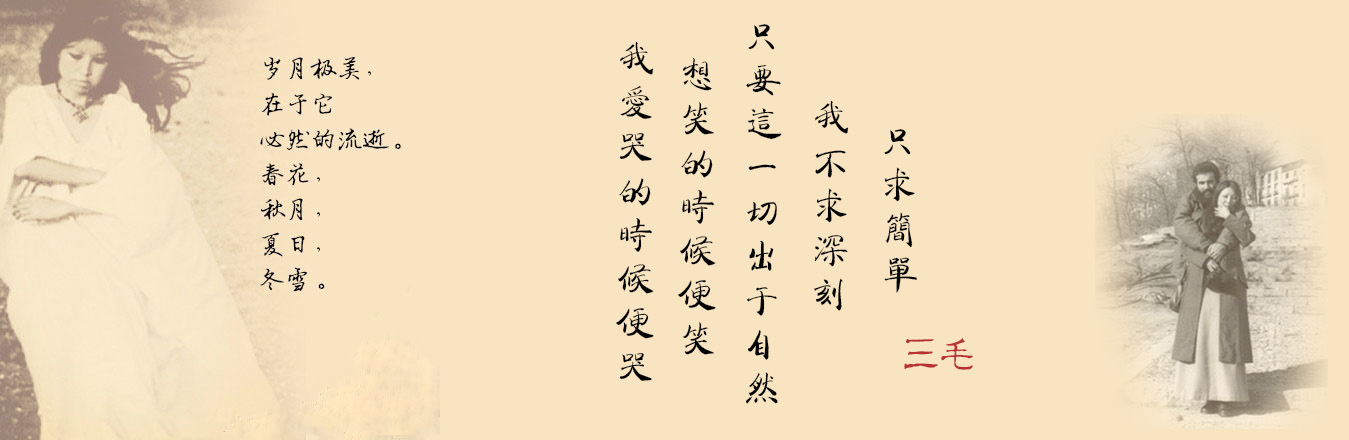 岁月极美，
在于它
必然的流逝。
春花，
秋月，
夏日，
冬雪。
我愛哭的時候便哭
想笑的時候便笑
只要這一切出于自然
我不求深刻
只求簡單
三毛